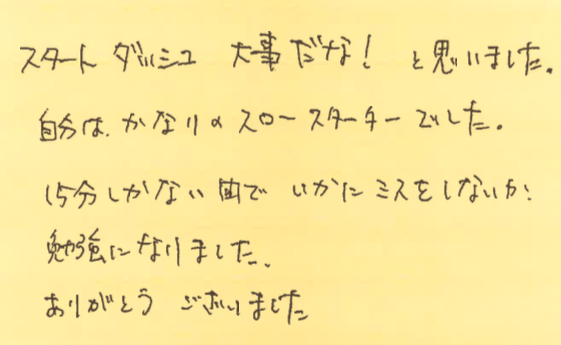 スタートダッシュ 大事だな! と思いました。
自分は、かなりのスロースターターでした。
15分しかない中で いかにミスをしないか
勉強になりました。
ありがとう ございました